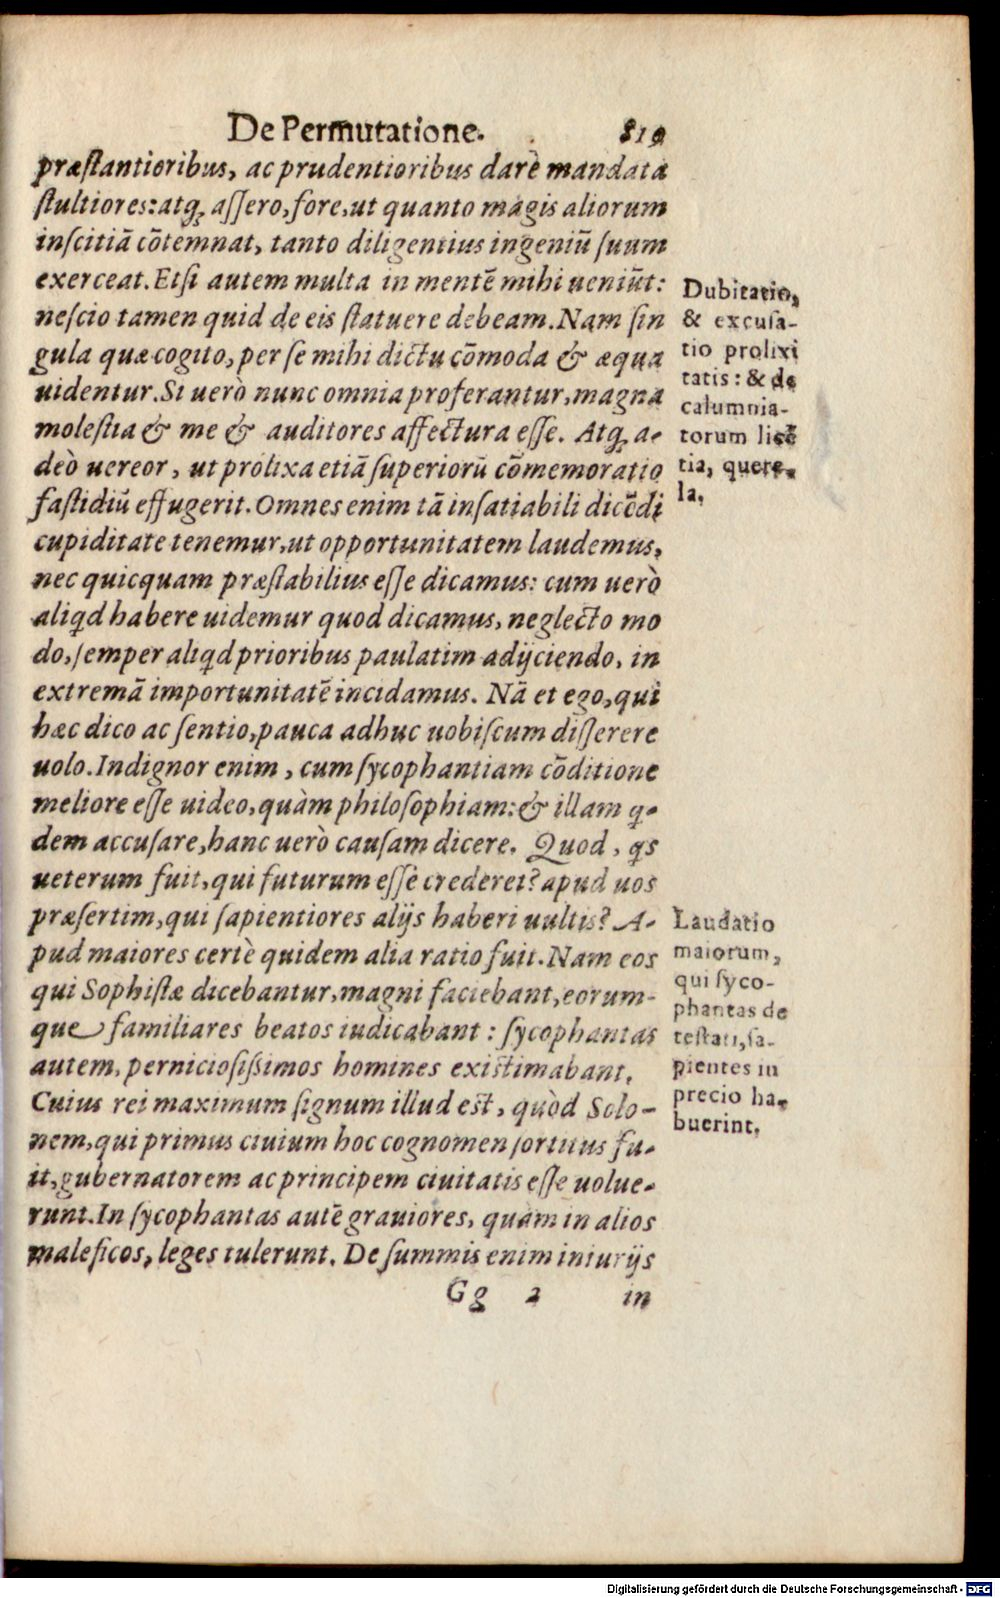 De Permutatione. 819
præstantioribus, ac prudentioribus darè mandata
stultiores: atq; assero, fore, ut quanto magis aliorum
inscitiā cōtemnat, tanto diligentius ingeniū suum
exerceat. Etsi autem multa in mentē mihi ueniūt:
nescio tamen quid de eis statuere debeam. Nam sin
gula quæ cogito, per se mihi dictu cōmoda & æqua
uidentur. Si uerò nunc omnia proferantur, magna
molestia & me & auditores affectura esse. Atq; a-
deò uereor, ut prolixa etiā superiorū cōmemoratio
fastidiū effugerit. Omnes enim tā insatiabili dicēdi
cupiditate tenemur, ut opportunitatem laudemus,
nec quicquam præstabilius esse dicamus: cum uerò
aliqd habere uidemur quod dicamus, neglecto mo
do, semper aliqd prioribus paulatim adijciendo, in
extremā importunitatē incidamus. Nā et ego, qui
hæc dico ac sentio, pauca adhuc uobiscum disserere
uolo. Indignor enim, cum sycophantiam cōditione
meliore esse uideo, quàm philosophiam: & illam q-
dem accusare, hanc uerò causam dicere. Quod, qs
ueterum fuit, qui futurum esse crederet? apud uos
præsertim, qui sapientiores alijs haberi uultis? A-
pud maiores certè quidem alia ratio fuit. Nam eos
qui Sophistæ dicebantur, magni faciebant, eorum-
que familiares beatos iudicabant: sycophantas
autem, perniciosissimos homines existimabant.
Cuius rei maximum signum illud est, quòd Solo-
nem, qui primus ciuium hoc cognomen sortitus fu-
it, gubernatorem ac principem ciuitatis esse uolue-
runt. In sycophantas autē grauiores, quàm in alios
maleficos, leges tulerunt. De summis enim iniurijs
Gg 2 in
Dubitatio,
& excusa-
tio prolixi
tatis: & de
calumnia-
torum licē
tia, quere-
la.
Laudatio
maiorum,
qui syco-
phantas de
testati, sa-
pientes in
precio ha-
buerint.
Digitalisierung gefördert durch die Deutsche Forschungsgemeinschaft - DFG